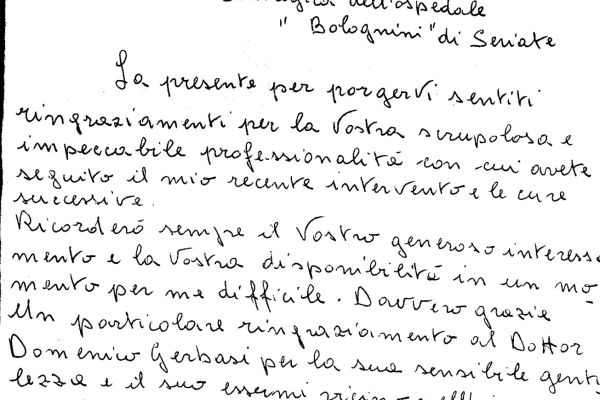 dell'ospedale
" Bolognini " di Seriate
La presente per porgervi sentiti
ringraziamenti per la Vostra scrupolosa e
impeccabile professionalità con cui avete
seguito il mio recente intervento e le cure
successive.
Ricorderó sempre il Vostro generoso interessa
mento e la Vostra disponibilitá in un mo
mento per me difficile. Davvero grazie
Un particolare ringraziamento al Dottor
Domenico Gerbasi per la sua sensibile genti
lezza e il suo essermi vicino